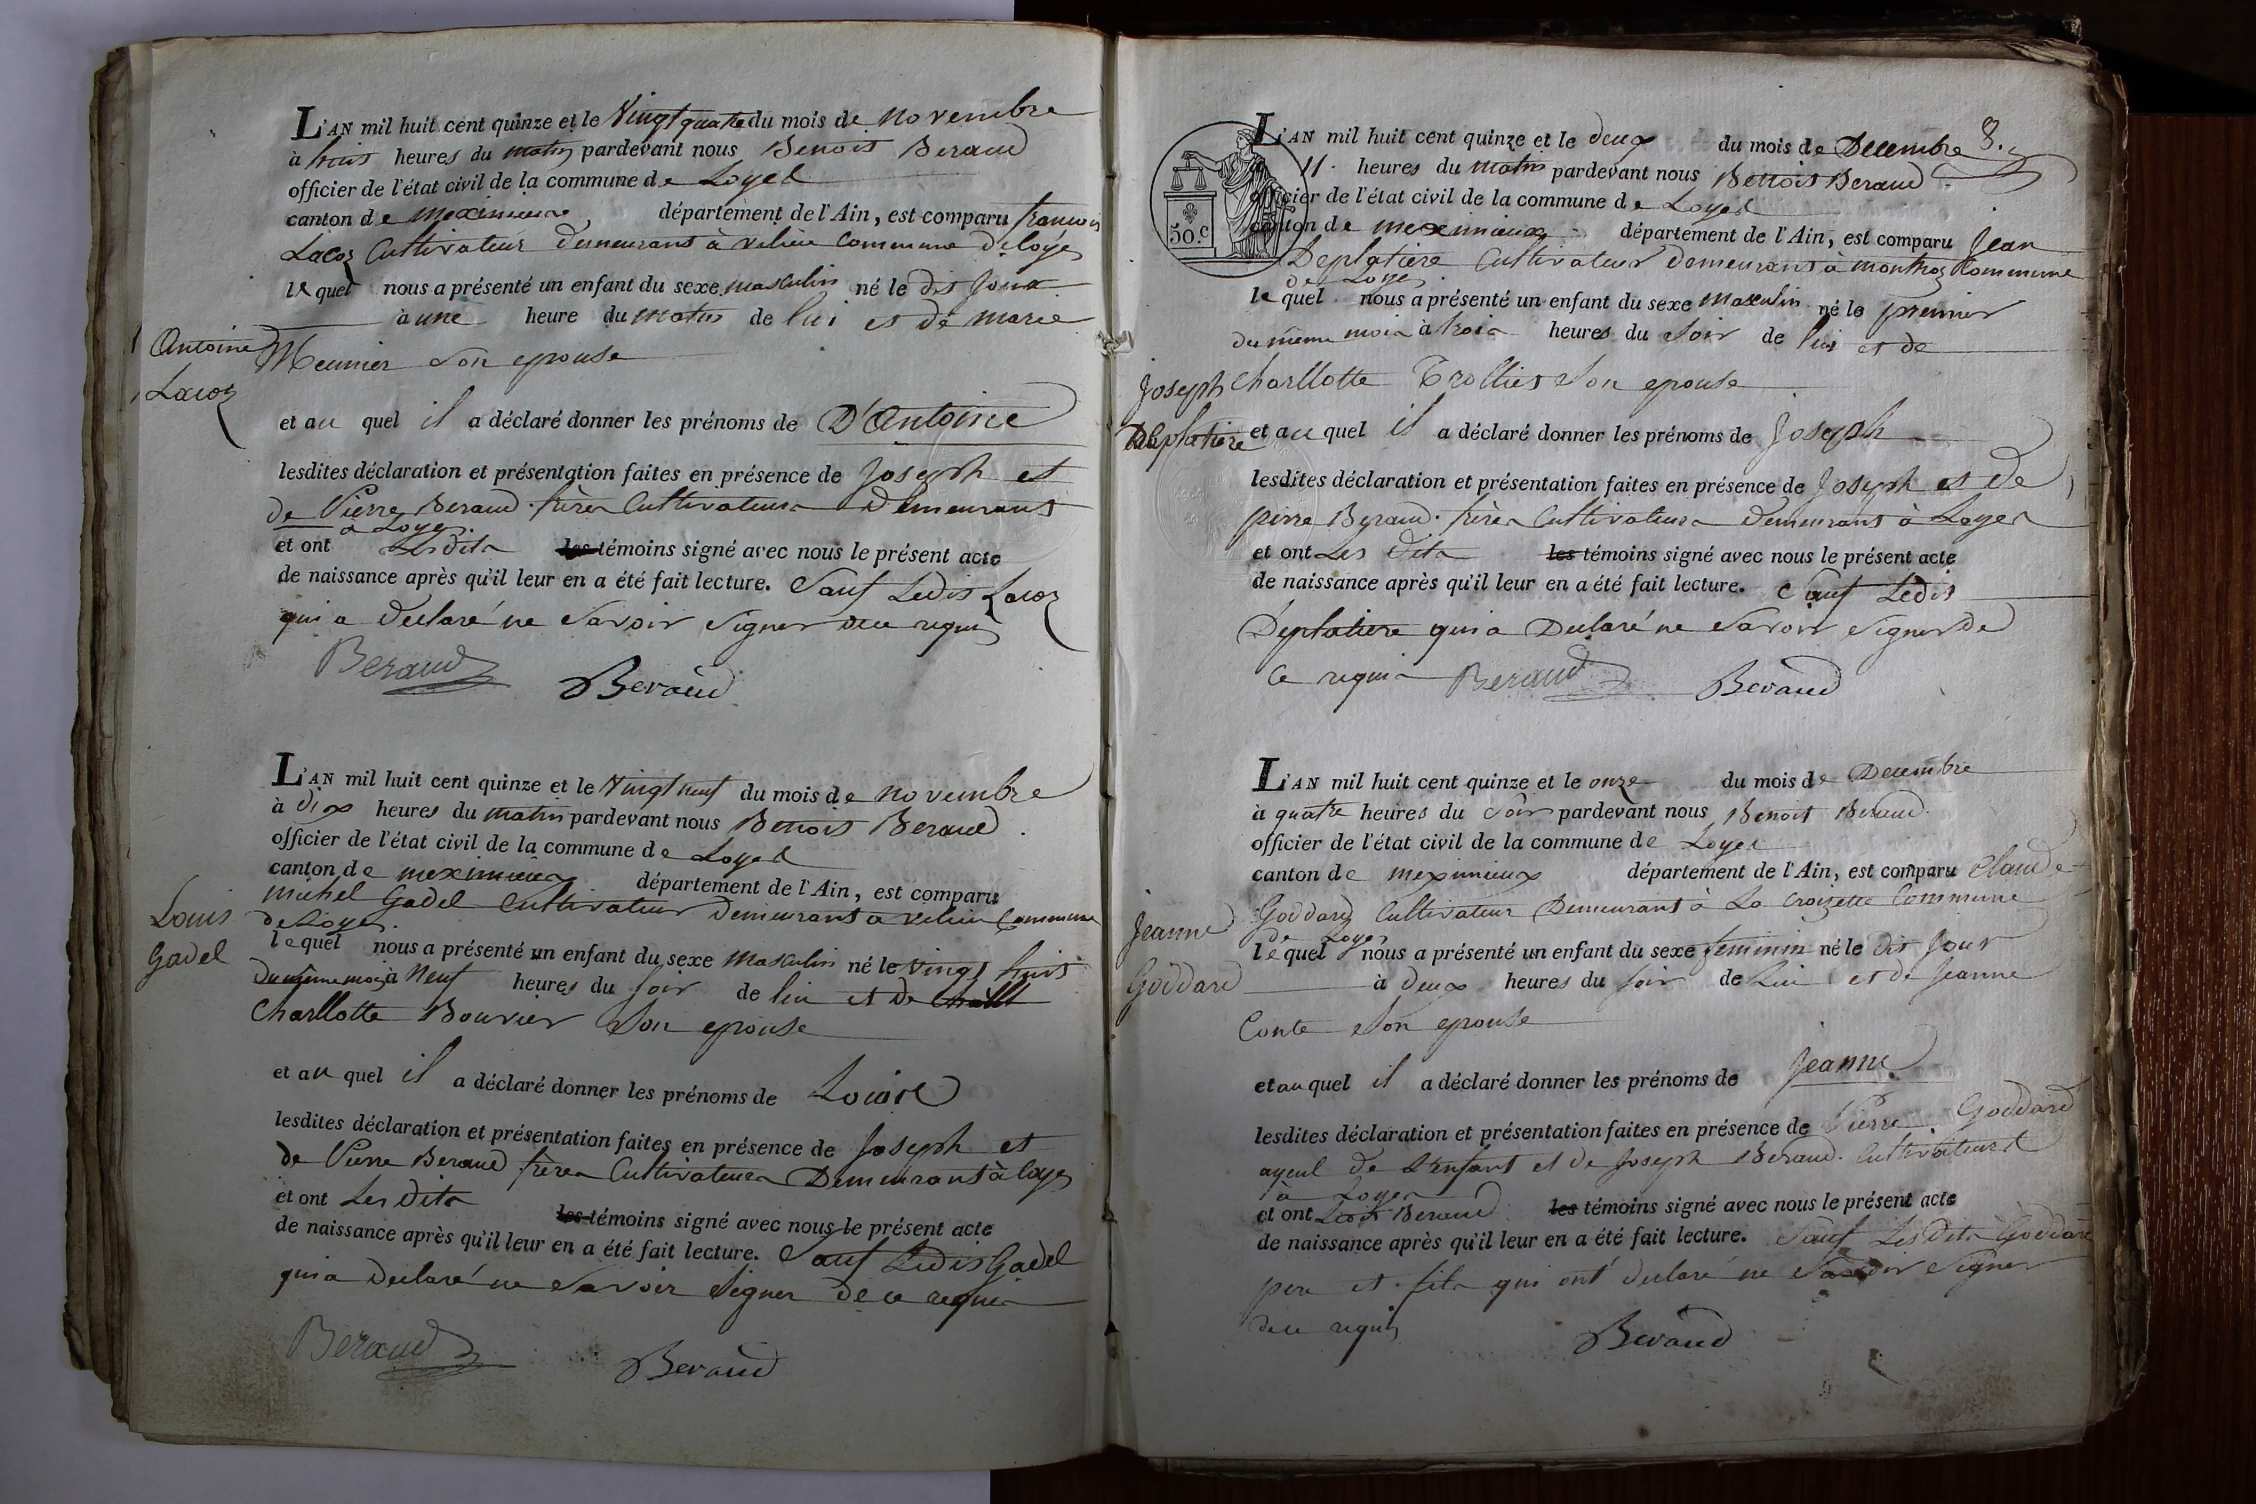 L'AN mil huit cent quinze et le Vingt quatre du mois de novembre
à huit heures du matin pardevant nous Benoit Beraud
officier de l'état civil de la commune de Loyes
canton de meximieux, département de l'Ain, est comparu francois
Lacoz Cultivateur demeurant à velieu Commune de Loyes
lequel nous a présenté un enfant du sexe masculin né le dit Jour
à une heure du matin de lui et de marie
Antoine
Meunier son epouse
Lacoz
et au quel il a déclaré donner les prénoms de D'Antoine
lesdites déclaration et présentation faites en présence de Joseph et
de Pierre Beraud frères Cultivateurs Demeurants
à Loyes
et ont Lesdits les témoins signé avec nous le présent acte
de naissance après qu'il leur en a été fait lecture. Sauf Ledit Lacoz
qui a declaré ne Savoir Signer de ce requis
Beraud Beraud
L'AN mil huit cent quinze et le Vingt neuf du mois de novembre
à dix heures du matin pardevant nous Benoit Beraud
officier de l'état civil de la commune de Loyes
canton de meximieux département de l'Ain, est comparu
michel Gadel Cultivateur Demeurant à velieu Commune
Louis
de Loyes.
Gadel
lequel nous a présenté un enfant du sexe Masculin né le vingt huit
du même mois à Neuf heures du soir de lui et de Charll
Charllotte Bouvier Son epouse
et au quel il a déclaré donner les prénoms de Louis
lesdites déclaration et présentation faites en présence de Joseph et
de Pierre Beraud frères Cultivateurs Demeurants à Loyes
et ont Les dits les témoins signé avec nous le présent acte
de naissance après qu'il leur en a été fait lecture. Sauf Ledit Gadel
qui a Declaré ne Savoir Signer de ce requis
Beraud Beraud
8.
L'AN mil huit cent quinze et le deux du mois de Decembre
à 11 heures du matin pardevant nous Benoit Beraud
50.c
officier de l'état civil de la commune de Loyes
canton de meximieux département de l'Ain, est comparu Jean
Deplatiere Cultivateur Demeurant à montroz Commune
de Loyes
lequel nous a présenté un enfant du sexe Masculin né le premier
du même mois à trois heures du Soir de lui et de
Joseph
Charllotte Trollier Son epouse
Deplatiere
et au quel il a déclaré donner les prénoms de Joseph
lesdites déclaration et présentation faites en présence de Joseph et de
pierre Beraud frères Cultivateurs demeurants à Loyes
et ont Les dits les témoins signé avec nous le présent acte
de naissance après qu'il leur en a été fait lecture. Sauf Ledit
Deplatiere qui a Declaré ne Savoir Signer de
ce requis Beraud Beraud
L'AN mil huit cent quinze et le onze du mois de Decembre
à quatre heures du Soir pardevant nous Benoit Beraud
officier de l'état civil de la commune de Loyes
canton de meximieux département de l'Ain, est comparu Claude
Jeanne
Goddard Cultivateur Demeurant à La Croizette Commune
de Loyes
Goddard
lequel nous a présenté un enfant du sexe feminin né le dit Jour
à deux heures du soir de Lui et de Jeanne
Conte Son epouse
et au quel il a déclaré donner les prénoms de Jeanne
lesdites déclaration et présentation faites en présence de Pierre Goddard
ayeul de l'enfant et de Joseph Beraud Cultivateurs
à Loyes
et ont Ledit Beraud les témoins signé avec nous le présent acte
de naissance après qu'il leur en a été fait lecture. Sauf Les Dits Goddard
pere et fils qui ont declaré ne Savoir Signer
de ce requis
Beraud